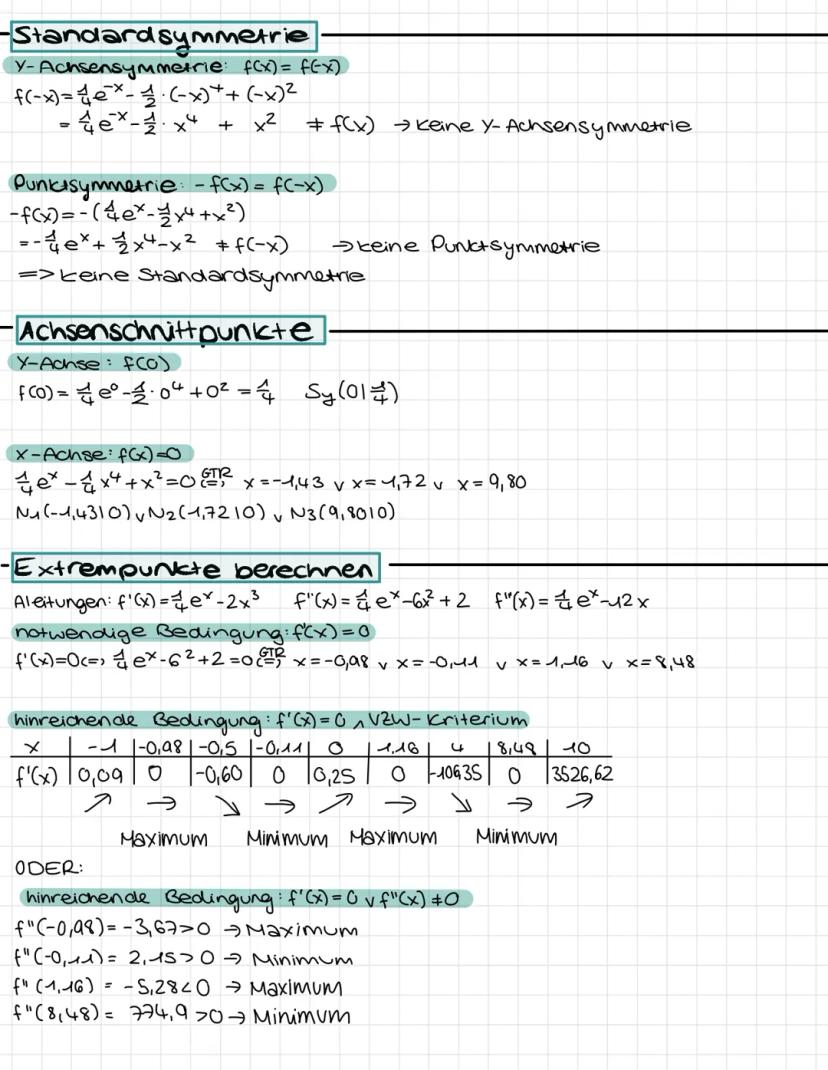 Standardsymmetrie
Y-Achsensymmetrie: f(x) = f(-x)
f(-x) = 1/4 e^-x - 1/2 · (-x)^4 + (-x)^2
= 1/4 e^-x - 1/2 · x^4 + x^2 ≠ f(x) → keine Y-Achsensymmetrie
Punktsymmetrie: - f(x) = f(-x)
-f(x) = - (1/4 e^x - 1/2 x^4 + x^2)
= - 1/4 e^x + 1/2 x^4 - x^2 ≠ f(-x) → keine Punktsymmetrie
=> keine Standardsymmetrie
Achsenschnittpunkte
Y-Achse: f(0)
f(0) = 1/4 e^0 - 1/2 · 0^4 + 0^2 = 1/4 Sy(0|1/4)
x-Achse: f(x)=0
1/4 e^x - 1/4 x^4 + x^2 = 0 <=> GTR x = -1,43 ∨ x = 1,72 ∨ x = 9,80
N1(-1,43|0) ∨ N2(1,72|0) ∨ N3(9,80|0)
Extrempunkte berechnen
Aleitungen: f'(x) = 1/4 e^x - 2x^3 f''(x) = 1/4 e^x - 6x^2 + 2 f''(x) = 1/4 e^x - 12x
notwendige Bedingung: f'(x) = 0
f'(x) = 0 <=> 1/4 e^x - 6^2 + 2 = 0 <=> GTR x = -0,98 ∨ x = -0,11 ∨ x = 1,16 ∨ x = 8,48
hinreichende Bedingung: f'(x) = 0 ∧ VZW-Kriterium
x | -1 | -0,98 | -0,5 | -0,11 | 0 | 1,16 | 4 | 8,49 | 10
f'(x) | 0,09 | 0 | -0,60 | 0 | 0,25 | 0 | -106,35 | 0 | 3526,62
↗ → ↘ → ↗ → ↘ → ↗
Maximum Minimum Maximum Minimum
ODER:
hinreichende Bedingung: f'(x) = 0 ∨ f''(x) ≠ 0
f''(-0,98) = -3,67 > 0 → Maximum
f''(-0,11) = 2,15 > 0 → Minimum
f''(1,16) = -5,28 < 0 → Maximum
f''(8,48) = 774,9 > 0 → Minimum